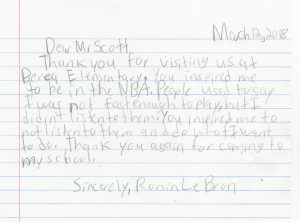 March 13, 2018
Dear Mr Scott,
Thank you for visiting us at
Berea Elementary. You inspired me
to be in the NBA. People used to say
I was not fast enough to play, but I
didn't listen to them. You inspired me to
not listen to them and do what I want
to do. Thank you again for coming to
my school.
Sincerely, Ronin LeBron